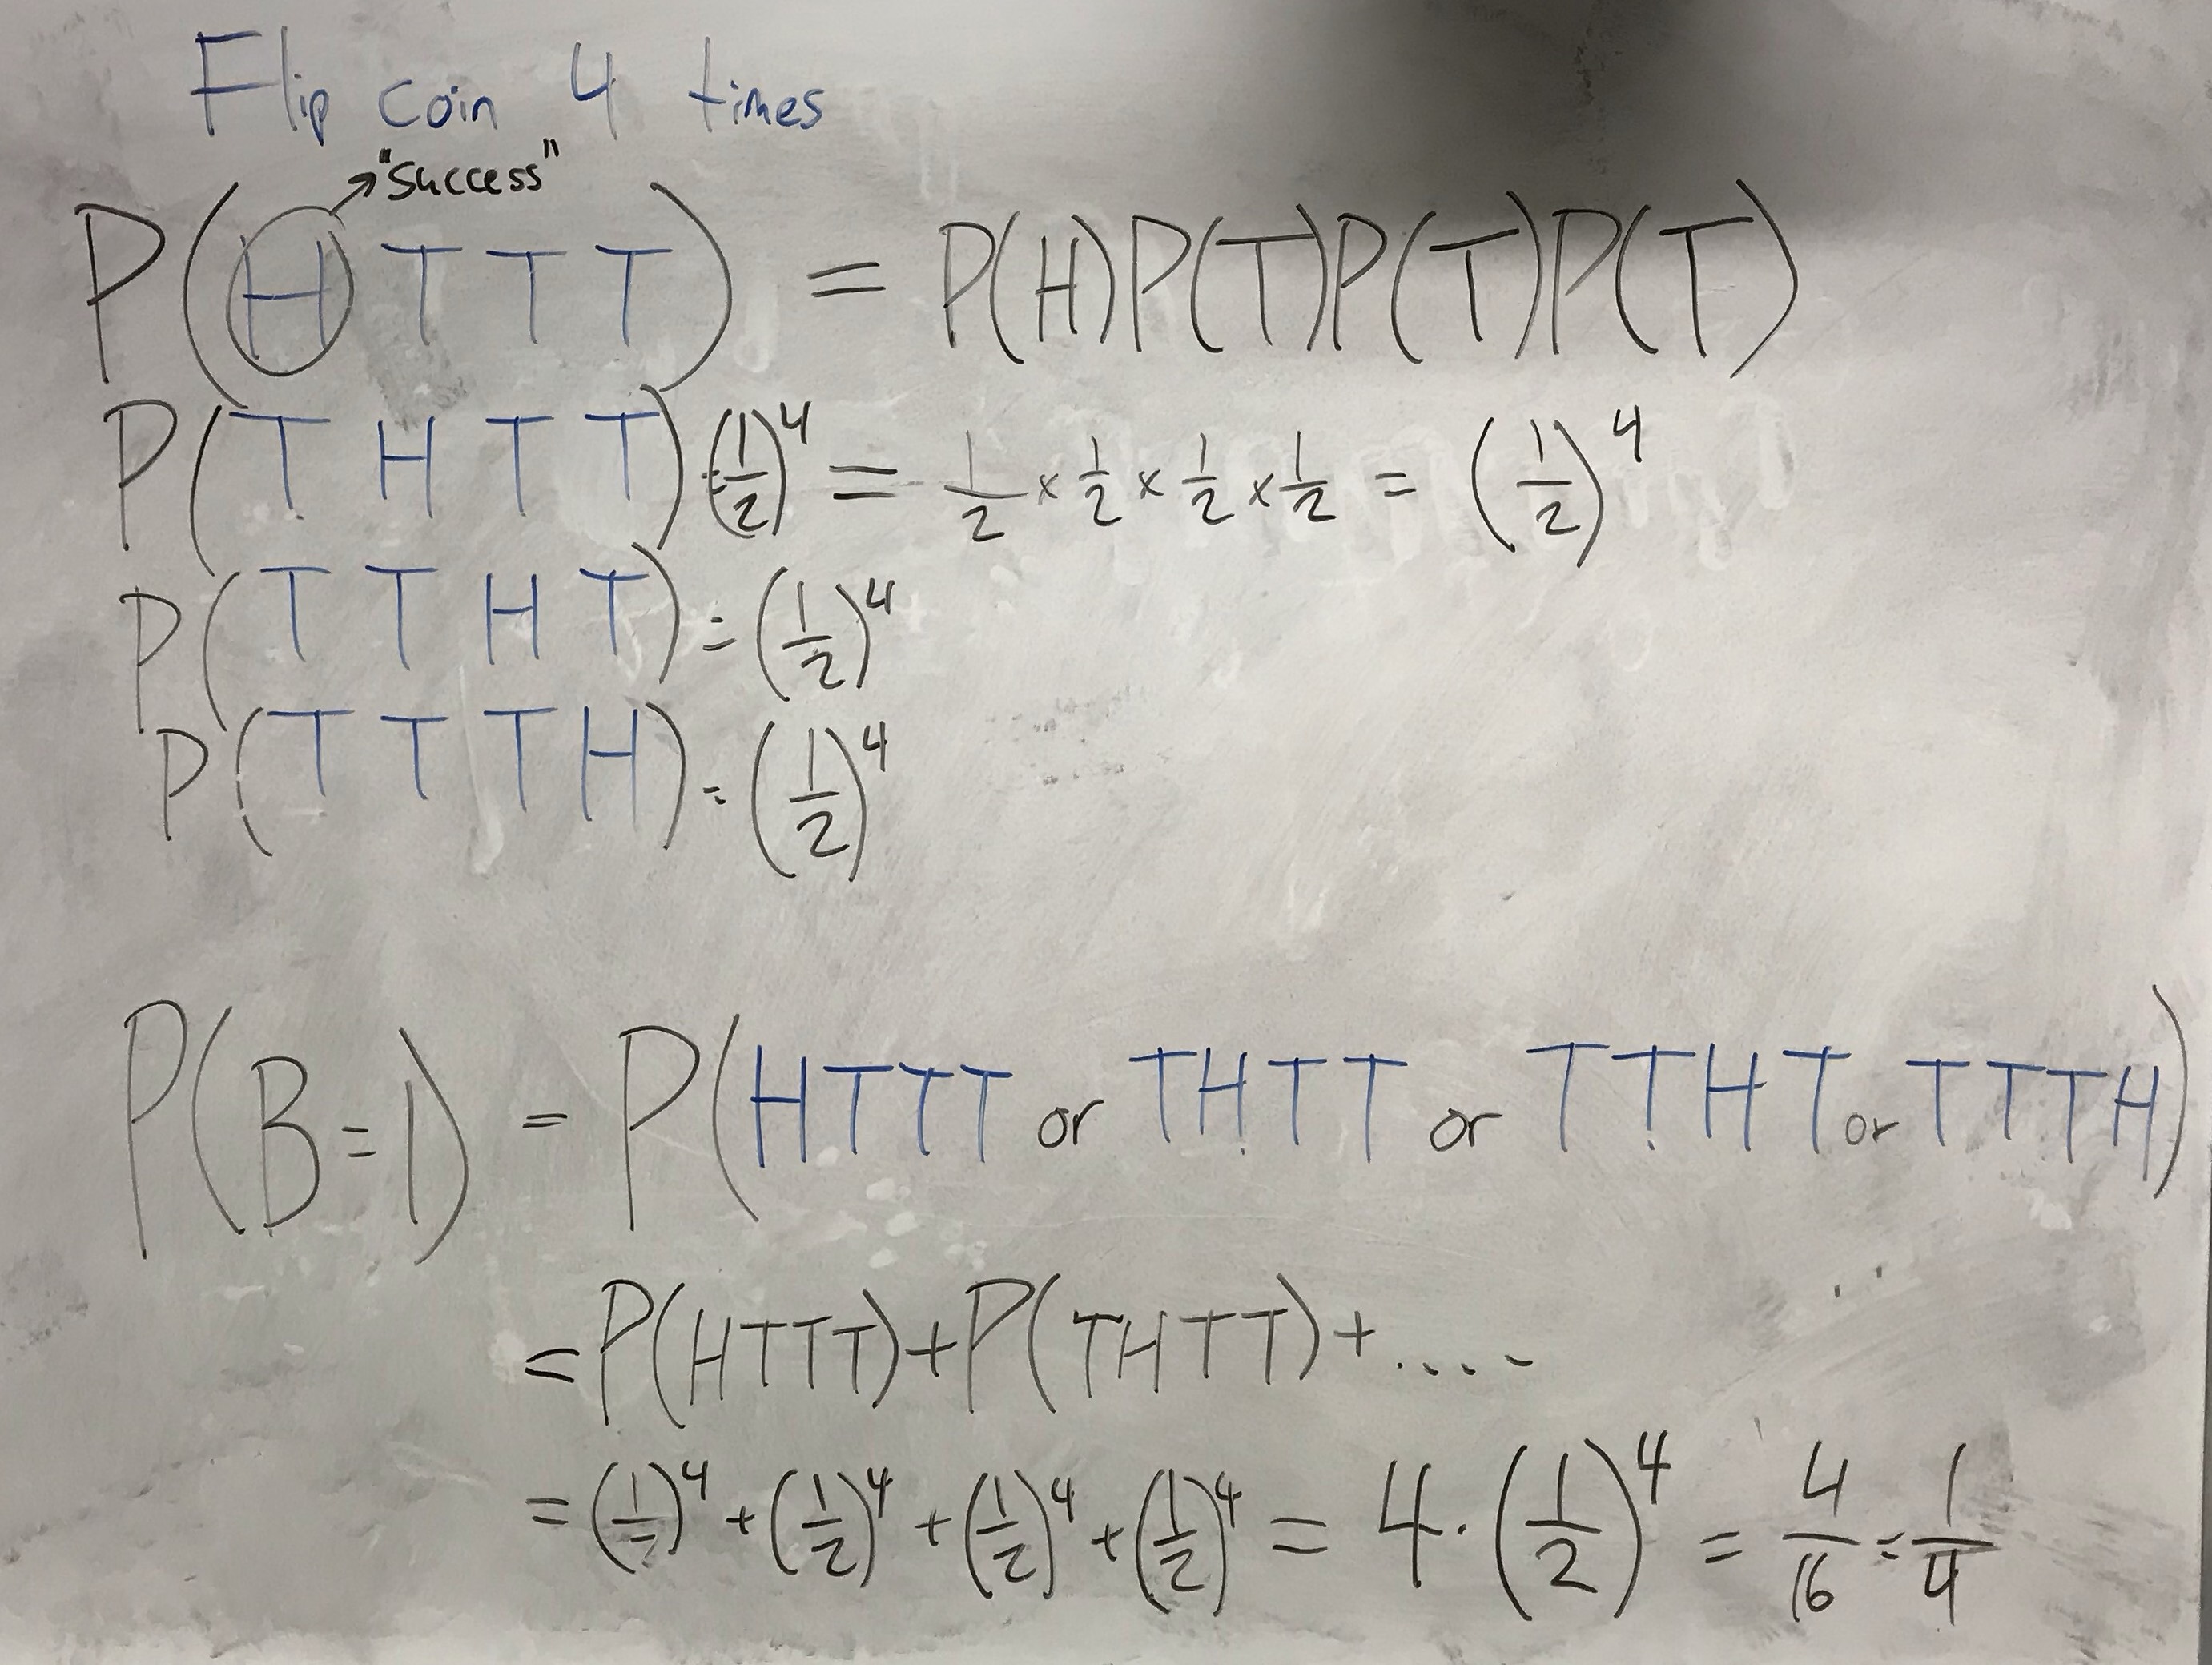 Flip coin 4 times
"Success"
P(H T T T) = P(H)P(T)P(T)P(T)
P(T H T T) = (1/2)^4 = 1/2 × 1/2 × 1/2 × 1/2 = (1/2)^4
P(T T H T) = (1/2)^4
P(T T T H) = (1/2)^4
P(B=1) = P(HTTT or THTT or TTHT or TTTH)
= P(HTTT) + P(THTT) + ....
= (1/2)^4 + (1/2)^4 + (1/2)^4 + (1/2)^4 = 4 · (1/2)^4 = 4/16 = 1/4